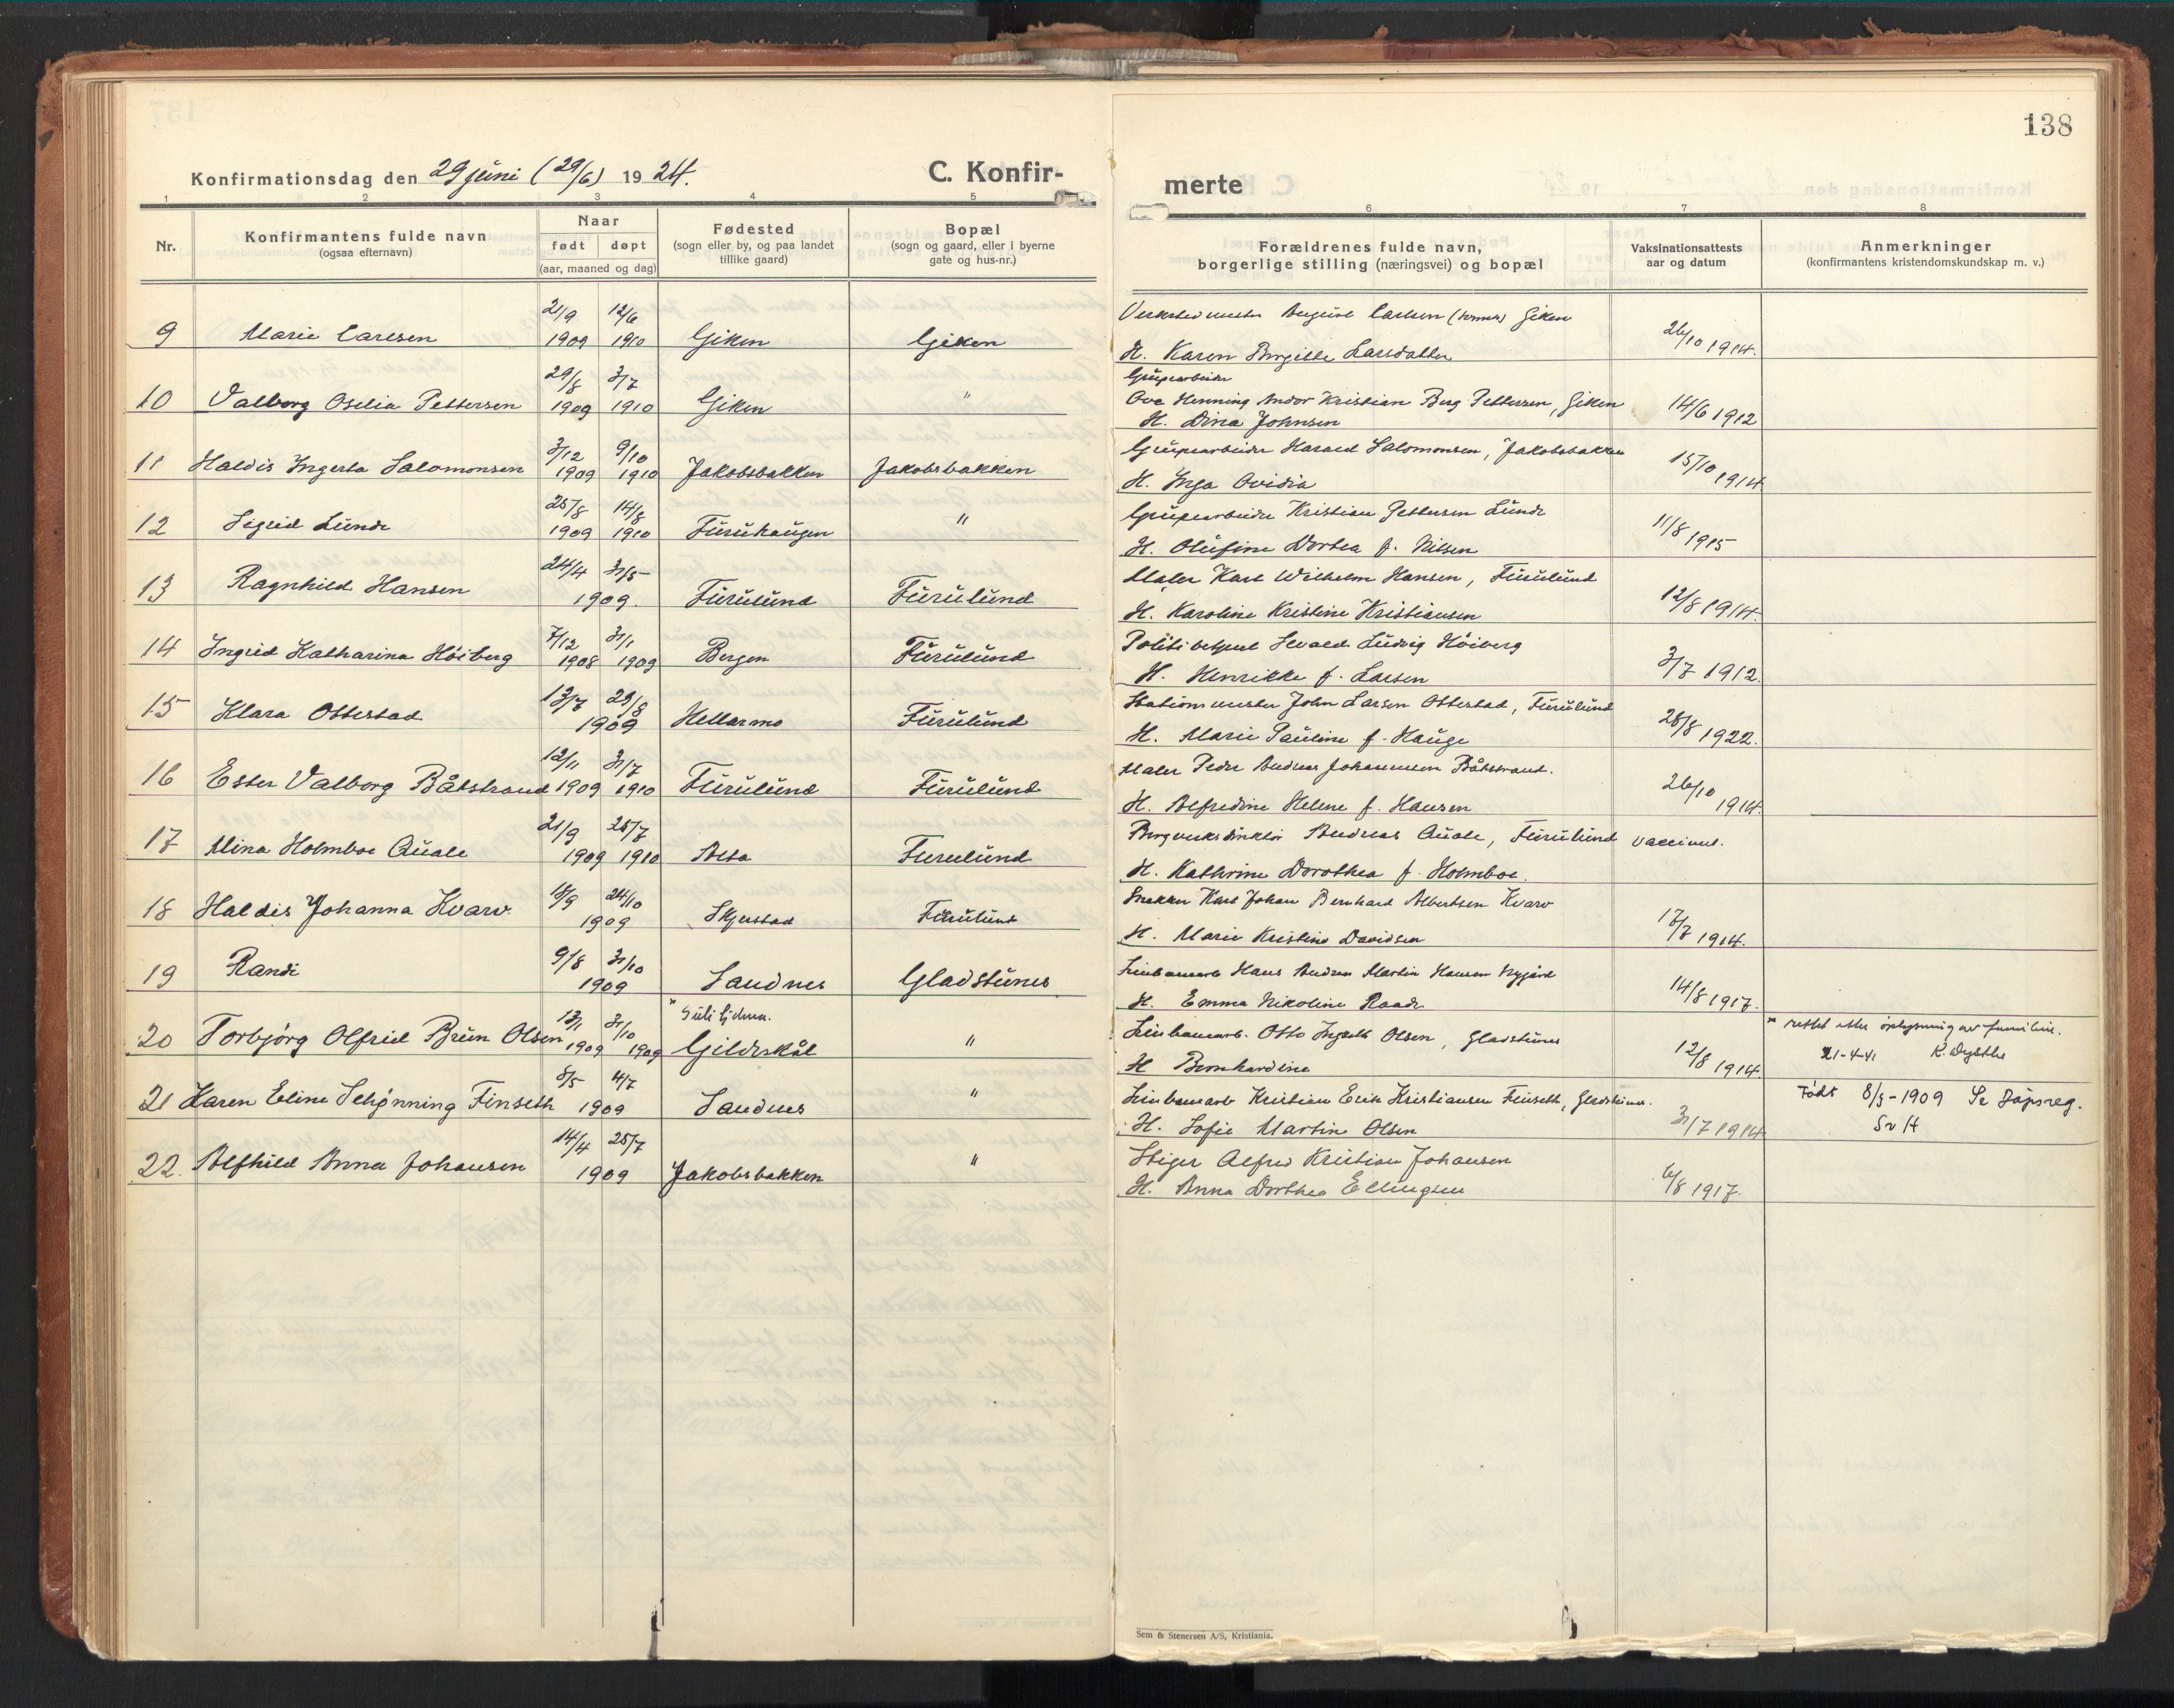 138
Konfirmationsdag den 29 juni (29/6) 1924.
C. Konfir-
merte
1 2 3 4 5 6 7 8
Nr.
Konfirmantens fulde navn
(ogsaa efternavn)
Naar
født døpt
(aar, maaned og dag)
Fødested
(sogn eller by, og paa landet
tillike gaard)
Bopæl
(sogn og gaard, eller i byerne
gate og hus-nr.)
Forældrenes fulde navn,
borgerlige stilling (næringsvei) og bopæl
Vaksinationsattests
aar og datum
Anmerkninger
(konfirmantens kristendomskundskap m. v.)
21/9 12/6
9 Marie Carlsen 1909 1910 Giken Giken
August Carlsen Giken
H. Karen Birgitte Larsdatter
26/10 1914.
29/8 3/7
10 Valborg Oselia Pettersen 1909 1910 Giken "
Grubearbeider
Ove Henning Andor Kristian Berg Pettersen, Giken
H. Dina Johnsen
14/6 1912
3/12 9/10
11 Haldis Ingerta Salomonsen 1909 1910 Jakobsbakken Jakobsbakken
Grubearbeider Harald Salomonsen, Jakobsbakken
H. Inga Ovidia
15/10 1914
25/8 14/8
12 Sigrid Lund 1909 1910 Furuhaugen "
Grubearbeider Kristian Pettersen Lund
H. Olufine Dortea f. Nilsen
11/8 1915
24/4 31/5
13 Ragnhild Hansen 1909. Furulund Furulund
Maler Karl Wilhelm Hansen, Furulund
H. Karoline Kristine Kristiansen
12/8 1914.
7/12 31/1
14 Ingrid Katharina Höiberg 1908 1909 Bergen Furulund
Politibetjent Sevald Ludvig Höiberg
H. Henrikke f. Larsen
3/7 1912.
13/7 29/8
15 Klara Otterstad 1909 Hellarmo Furulund
Stationsmester John Larsen Otterstad, Furulund
H. Marie Pauline f. Hauge
28/8 1922.
12/11 31/7
16 Ester Valborg Båtstrand 1909 1910 Furulund Furulund
Maler Peder Andreas Johannesen Båtstrand.
H. Alfredine Helene f. Hansen
26/10 1914.
21/9 25/7
17 Mina Holmboe Quale 1909 1910 Alta Furulund
Bergverksdirektör Andreas Quale, Furulund
H. Kathrine Dorothea f. Holmboe.
18/9 24/10
18 Haldis Johanna Kvarv 1909 Skjerstad Furulund
Snekker Karl Johan Bernhard Albertsen Kvarv
H. Marie Kristine Davidsen
17/7 1914.
9/8 31/10
19 Randi 1909 Sandnes Gladstunes
Hans Andreas Martin Hansen Nygård
H. Emma Nikoline Raade
14/8 1917.
13/1 31/10
20 Torbjörg Olfrid Brun Olsen 1909 1909 Gildeskål "
Linbanearb. Otto Olsen, Gladstunes
H Bernhardine
12/8 1914.
* rettet etter oplysning av familien.
21-4-41 K. Dysthe
8/5 4/7
21 Karen Eline Schønning Finseth 1909 Sandnes "
Linbanearb Kristian Erik Kristiansen Finseth, Gladstunes.
H. Sofie Martine Olsen
31/7 1914
Født 8/5-1909 Se Dåpsreg.
SvH
14/4 25/7
22. Alfhild Anna Johansen 1909 Jakobsbakken "
Stiger Alfred Kristian Johansen
H. Anna Dorthea Ellingsen
6/8 1917.
Sem & Stenersen A/S, Kristiania.